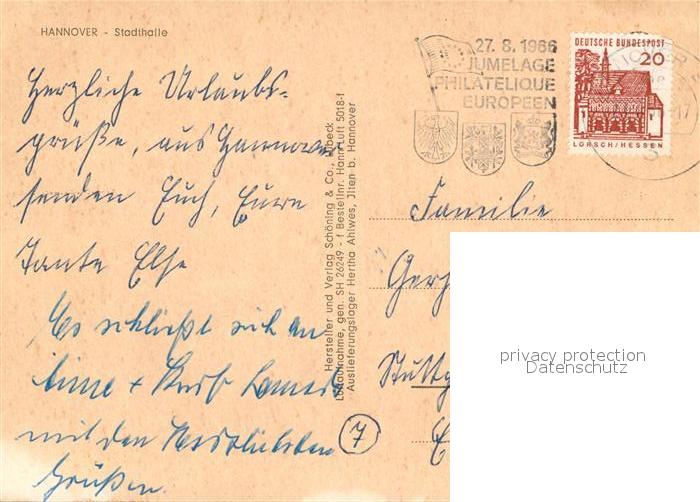 HANNOVER - Stadthalle
Herzliche Urlaubs-
grüße, aus Hannover
senden Euch, Eure
Tante Else
Es schließt sich an
mit den herzlichsten
Grüßen.
Hersteller und Verlag Schöning & Co., Lübeck
Luftaufnahme, gen. SH 26249 - f Bestellnr. Hann Luft 5018-f
Auslieferungslager Hertha Ahlwes, Ilten b. Hannover
27. 8. 1966
JUMELAGE
PHILATELIQUE
EUROPEEN
DEUTSCHE BUNDESPOST
20
LORSCH/HESSEN
Familie
Gerh
Stuttg
7
privacy protection
Datenschutz